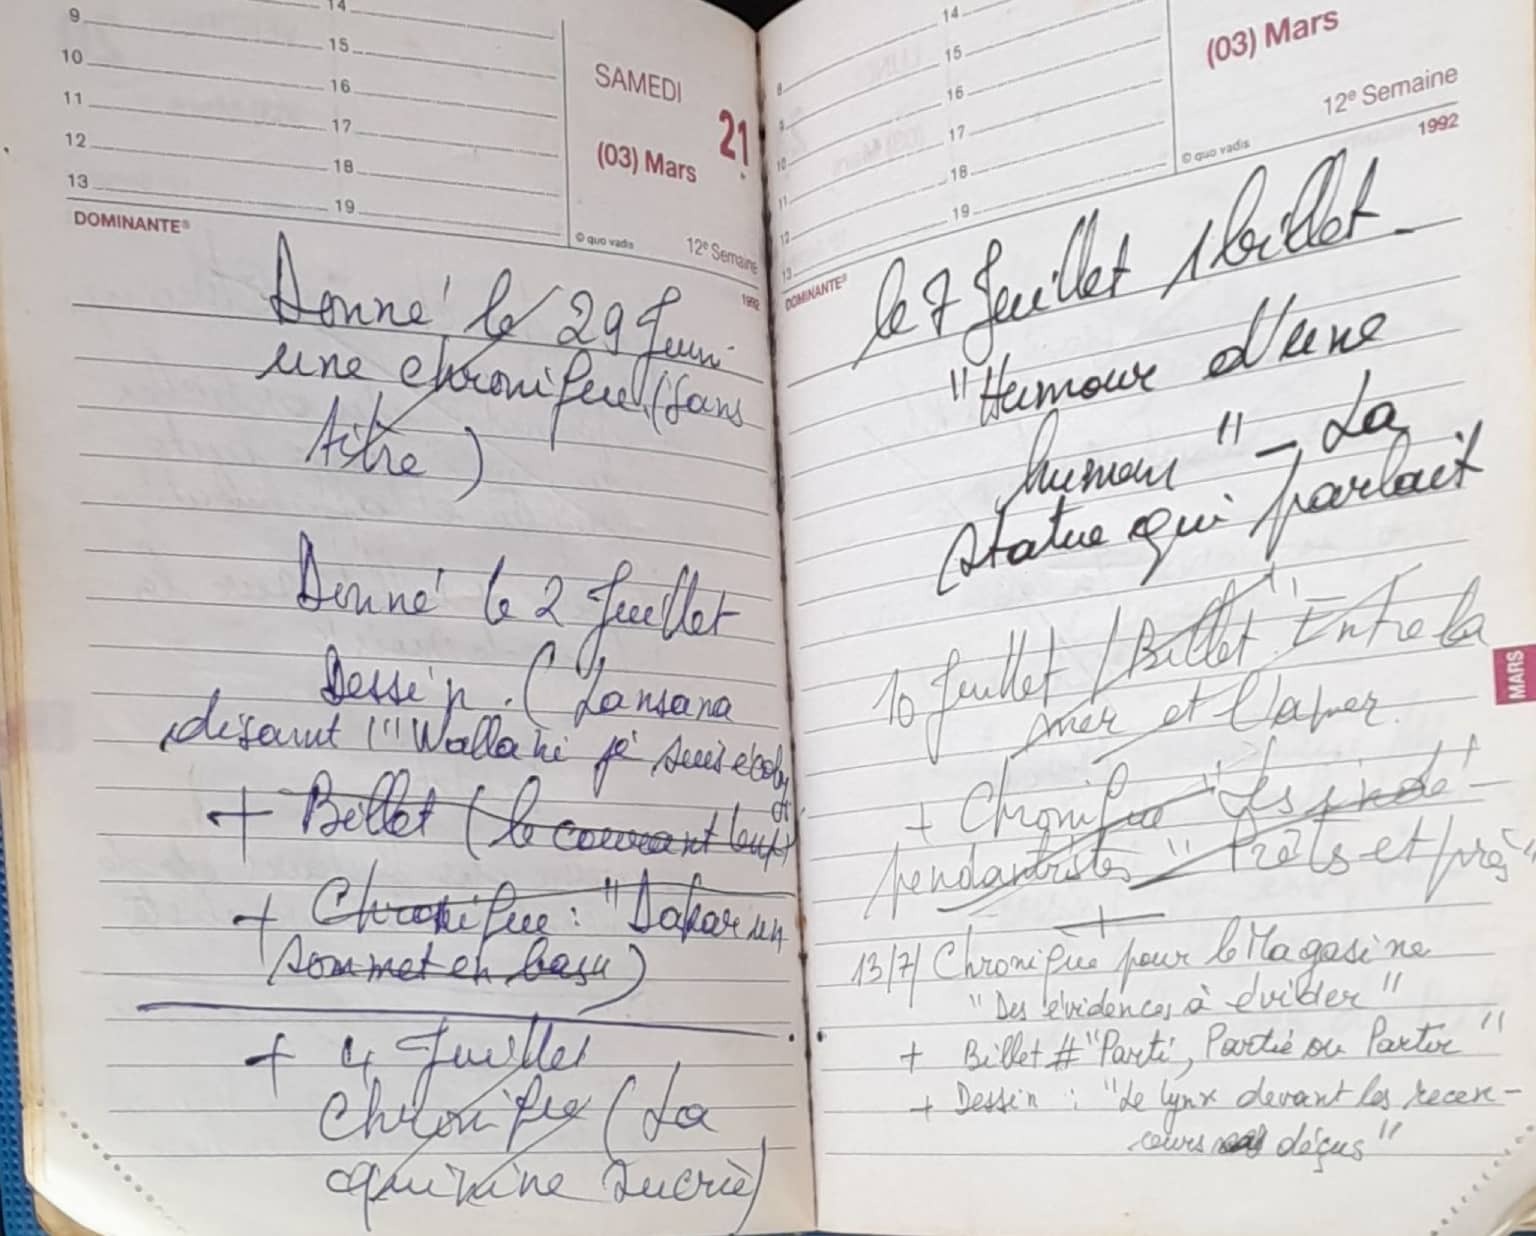 14
9
15
10
16
11
17
12
18
13
19
SAMEDI
21
(03) Mars
DOMINANTE®
© quo vadis
12e Semaine
1992
Donné le 29 Juin
une chronique (sans
titre)
Donné le 2 Juillet
Dessin. (Lansana
disant "Wallahi je suis écolo
+ Billet (le courant
+ Chronique : "Dakar un
sommet en
+ 4 Juillet
Chronique (La
quinine sucrée)
14
8
15
9
16
10
17
11
18
12
19
13
(03) Mars
12e Semaine
1992
© quo vadis
DOMINANTE®
le 7 Juillet 1 billet -
"Humour d'une
humeur" - La
statue qui parlait
10 Juillet / Billet "Entre la
mer et l'amer.
+ Chronique "Les indé-
pendantistes" "Prêts et près"
+
13/7/ Chronique pour le Magasine
"Des évidences à évider"
+ Billet # "Parti, Partie ou Partir"
+ Dessin : "Le lynx devant les recen-
seurs déçus"
MARS